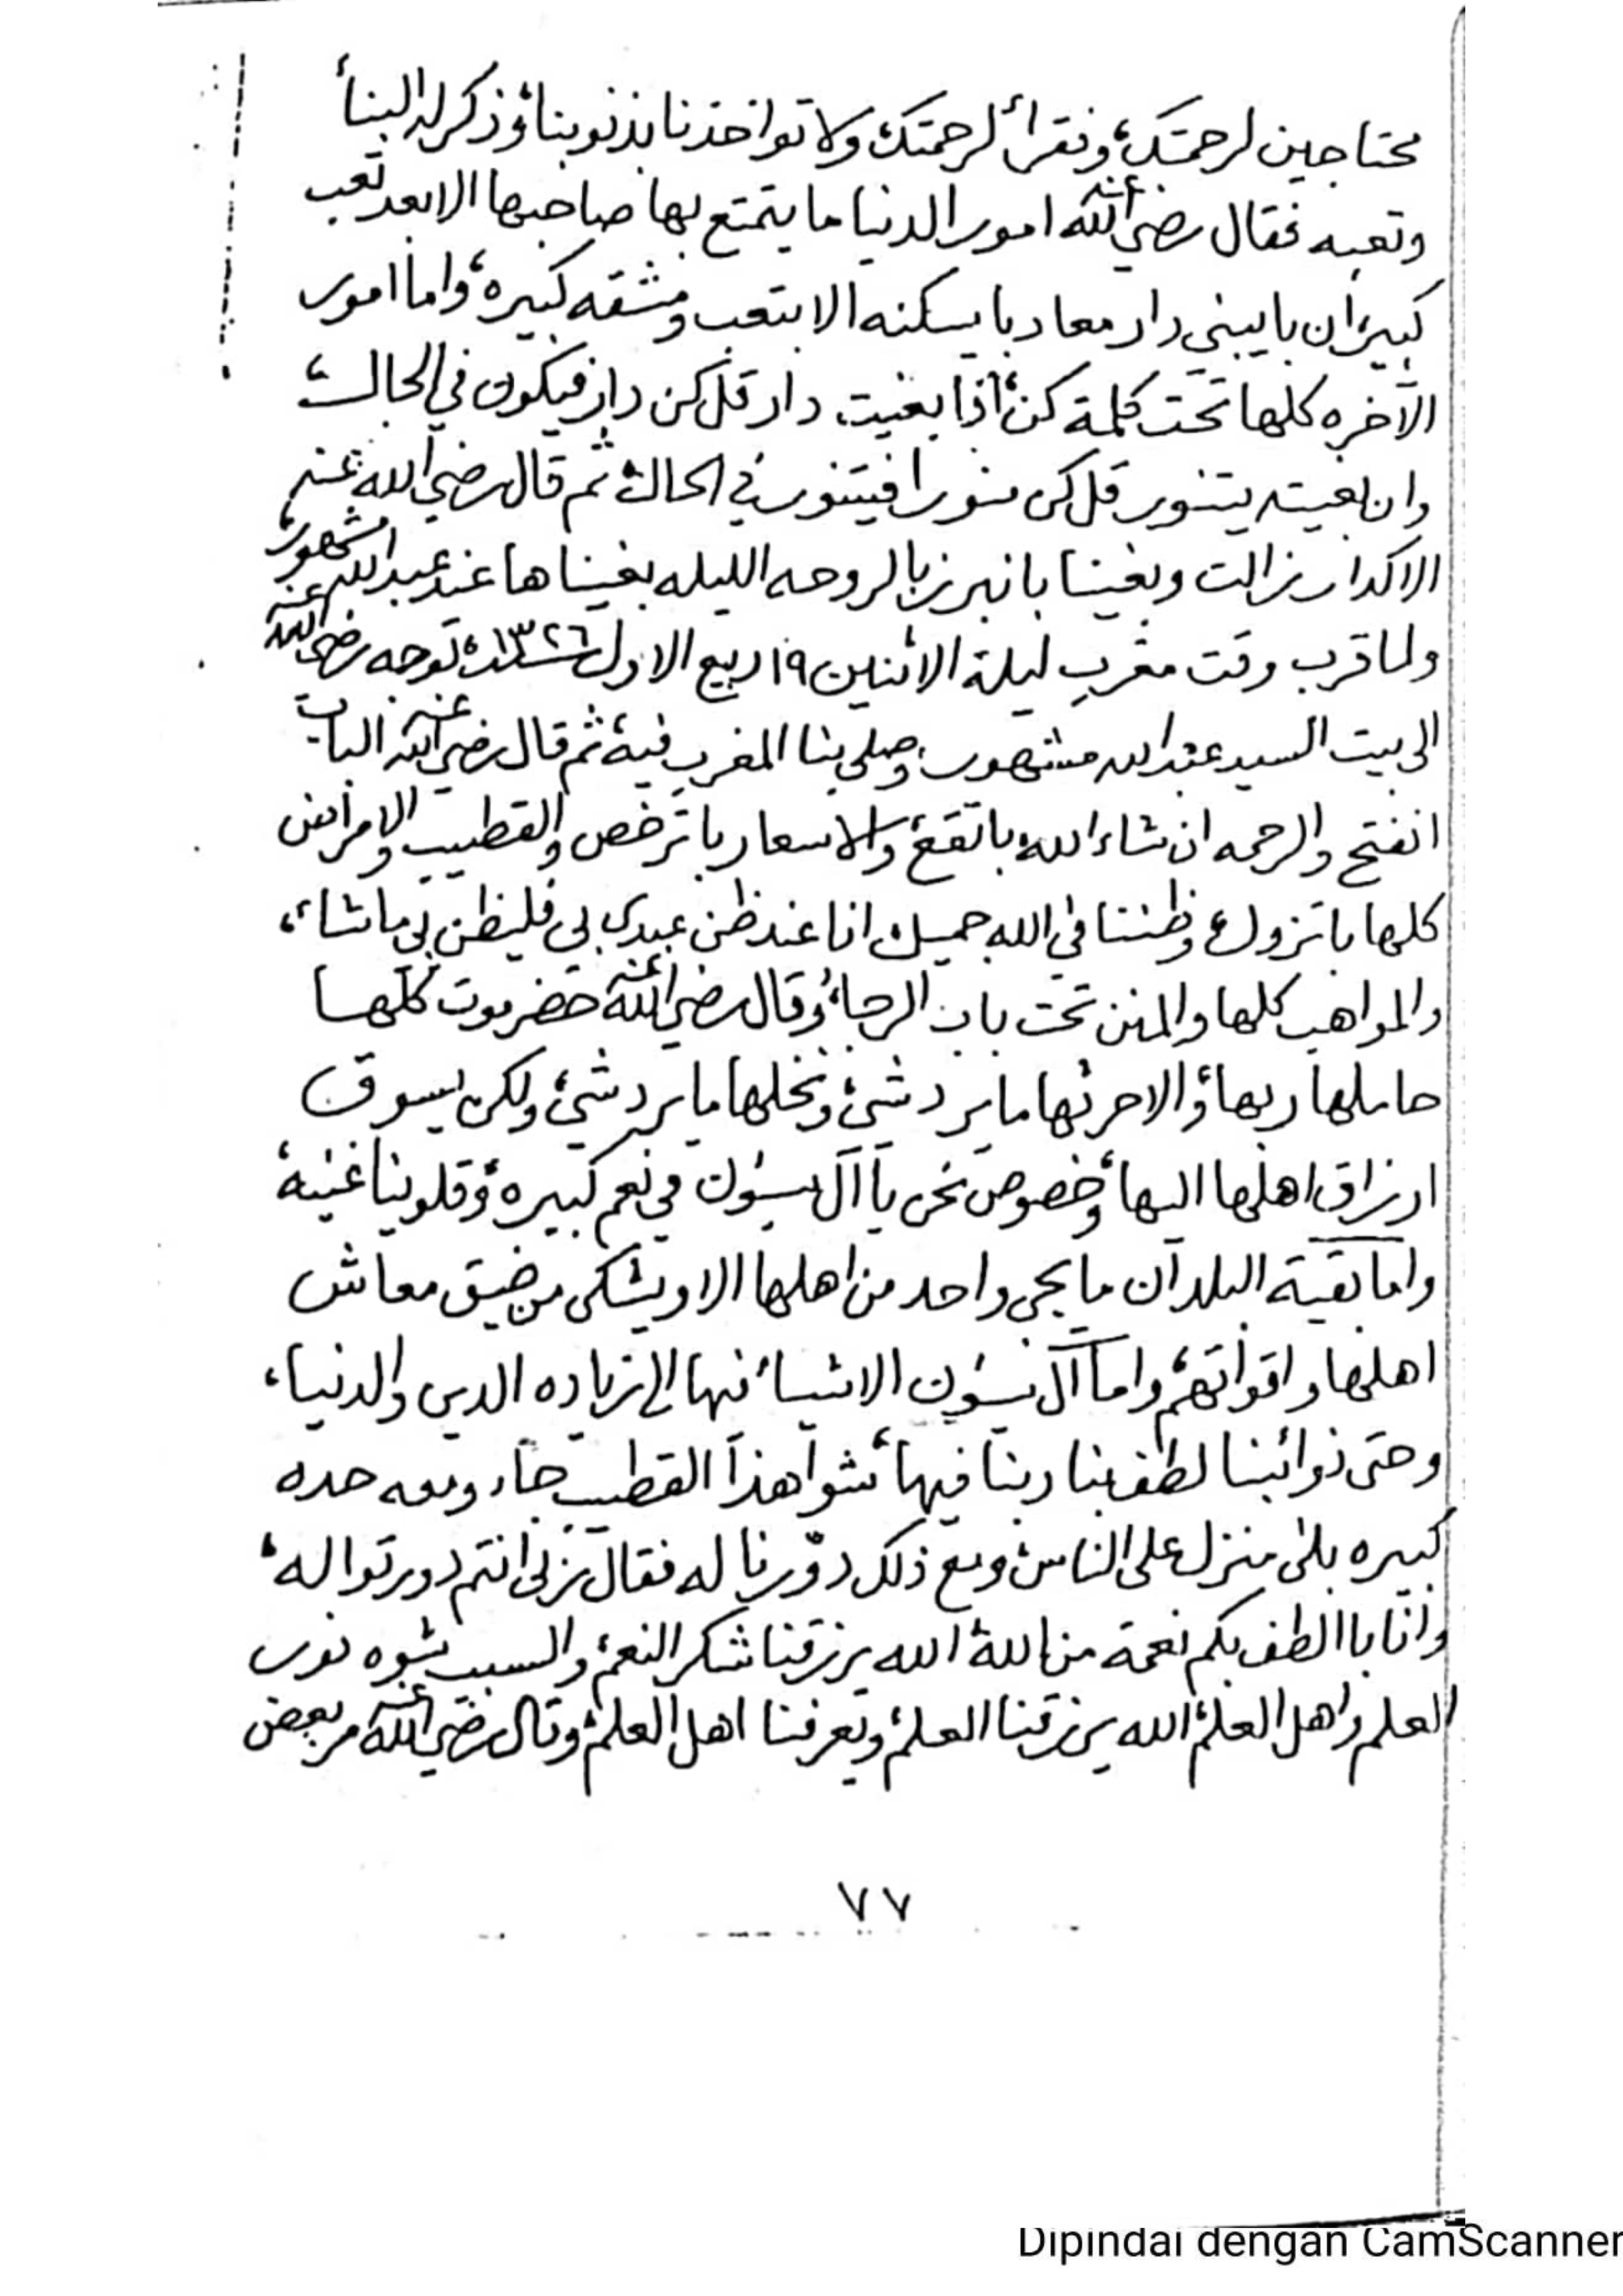 محتاجين لرحمتك، وفقراء لرحمتك، ولا تواخذنا بذنوبنا، وذكر له البناء
وتعبه فقال رضي الله عنه امور الدنيا ما يتمتع بها صاحبها الا بعد تعب
كبير، ان بايبني دار معاد باسكنه الا بتعب ومشقه كبيره، واما امور
الآخره كلها تحت كلمة كن، اذا بغيت دار قل كن دار فيكون في الحال،
وان بغيته يتنور قل كن منورا فيتنور في الحال، ثم قال رضي الله عنه
الاكدار زالت وبغينا بانبرز بالروحه الليله بغيناها عند عبدالله مشهور،
ولما قرب وقت مغرب ليلة الاثنين ١٩ ربيع الاول سنة ١٣٢٦، توجه رضي الله عنه
الى بيت السيد عبدالله مشهور، وصلى بنا المغرب فيه، ثم قال رضي الله عنه الباب
انفتح والرحمه ان شاء الله باتقع، والاسعار باترخص والقطيب والامراض
كلها باتزول، وظننا في الله جميل، انا عند ظن عبدي بي فليظن بي ماشاء،
والمواهب كلها والمنن تحت باب الرجاء، وقال رضي الله عنه حضرموت كلها
حاملها ربها، والا حرثها ما يرد شيء، ونخلها ما يرد شيء، ولكن يسوق
ارزاق اهلها اليها، وخصوص نحن يا آل سيئون في نعم كبيره، وقلوبنا غنيه،
واما بقية البلدان ما يجي واحد من اهلها الا ويشكي من ضيق معاش
اهلها واقواتهم، واما آل سيئون الاشياء فيها الى زياده الدين والدنيا،
وحتى ذوائبنا لطف بنا ربنا فيها، شوا هذا القطيب جاء ومعه حده
كبيره بلى منزل على الناس، ومع ذلك دوّرنا له فقال نزلى انتم دورتوا له،
وانا باالطف بكم نعمة من الله، الله يرزقنا شكر النعم، والسبب شوه نور
العلم واهل العلم، الله يرزقنا العلم، ويعرفنا اهل العلم، وقال رضي الله عنه مر بعض
٧٧
Dipindai dengan CamScanner